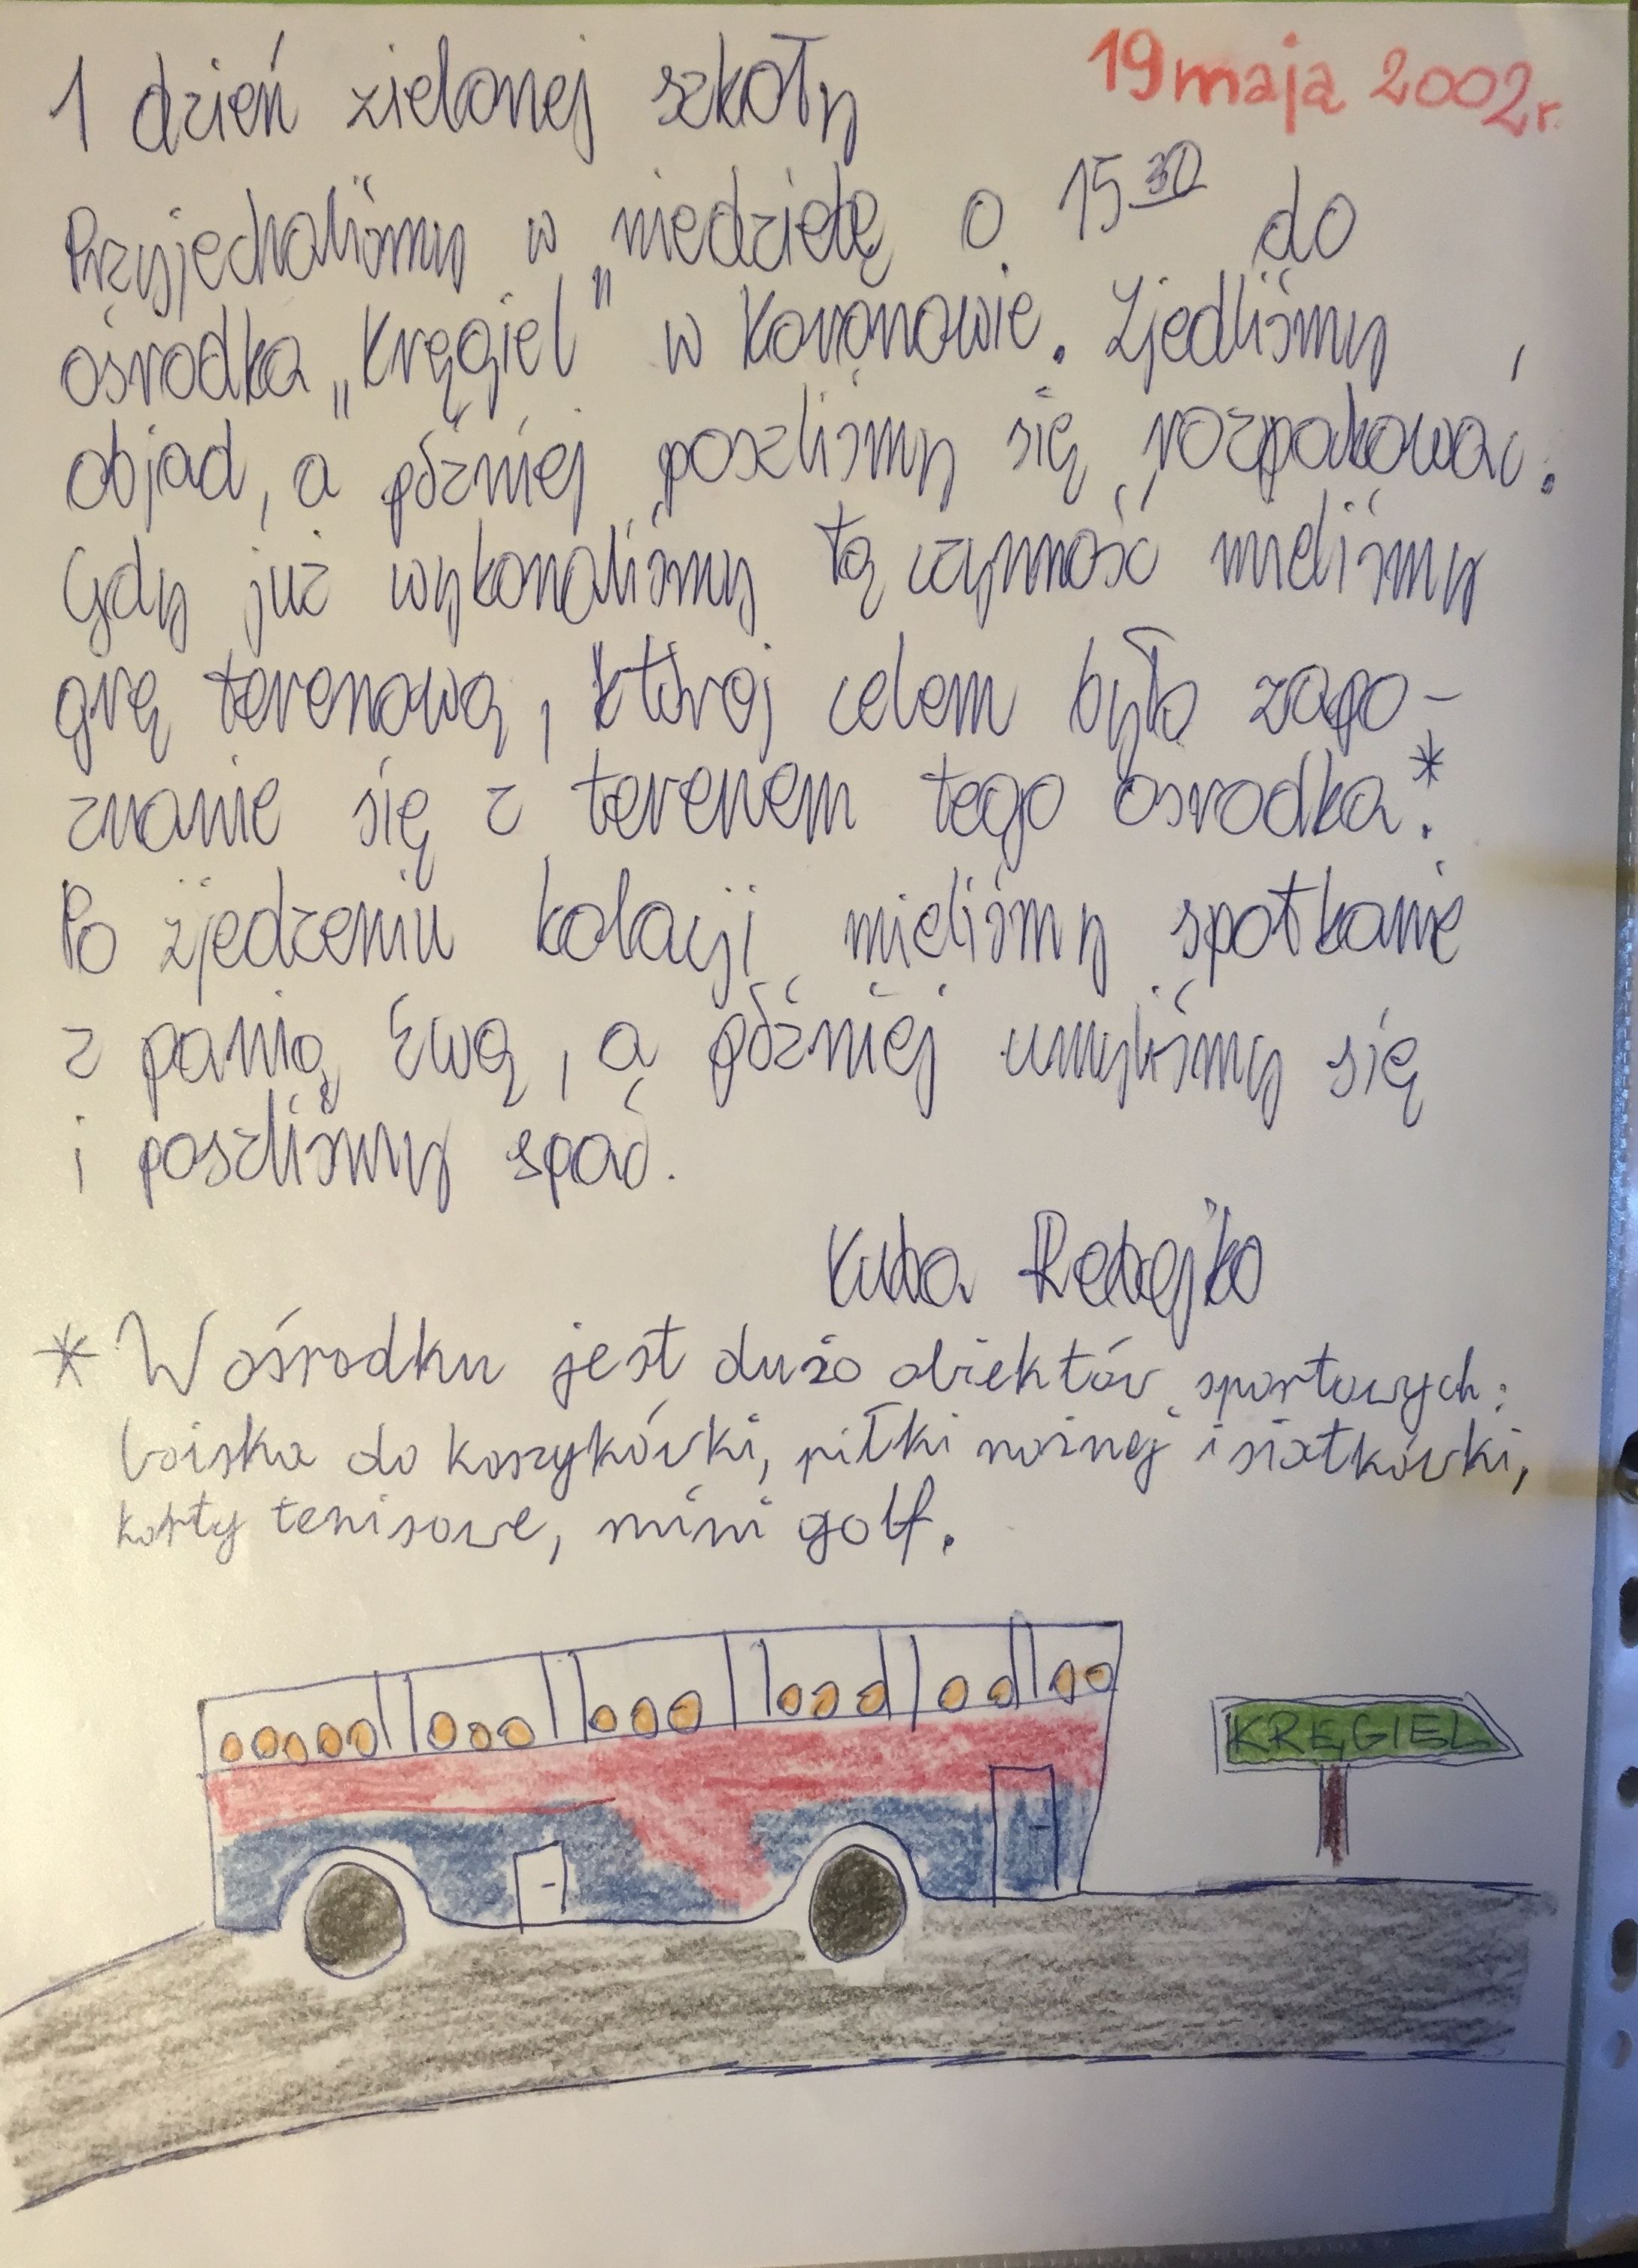 1 dzień zielonej szkoły
19 maja 2002r.
Przyjechaliśmy w niedzielę o 15³⁰ do
ośrodka „Kręgiel" w Koronowie. Zjedliśmy
objad, a później poszliśmy się rozpakować.
Gdy już wykonaliśmy tą czynność mieliśmy
grę terenową, której celem było zapo-
znanie się z terenem tego ośrodka.*
Po zjedzeniu kolacji mieliśmy spotkanie
z panią Ewą, a później umyliśmy się
i poszliśmy spać.
Kuba
* W ośrodku jest dużo obiektów sportowych:
boiska do koszykówki, piłki nożnej i siatkówki,
korty tenisowe, mini golf.
KRĘGIEL